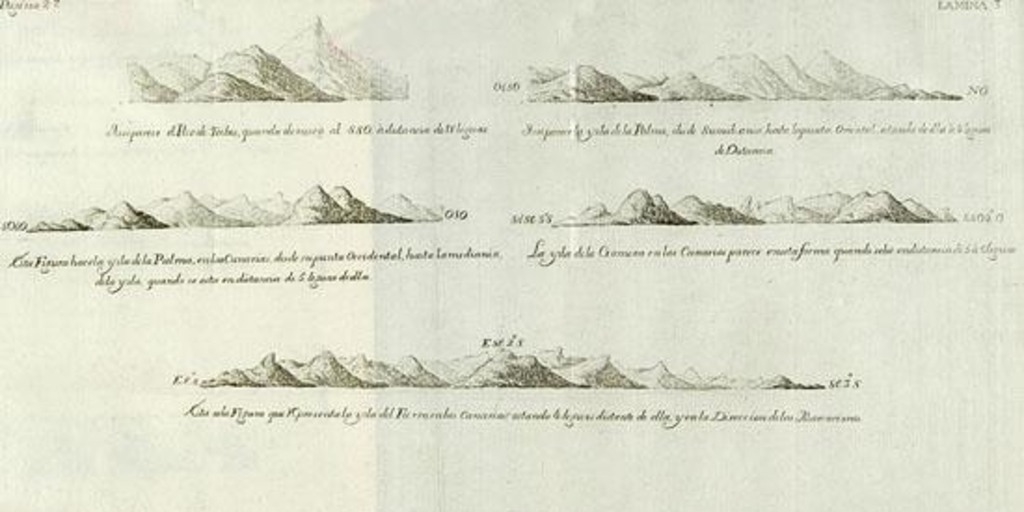 Pagina 2ª
LAMINA 3
OISO
NO
Asi parece el Pico de Teide, quando demora al SSO. à distancia de 18 leguas
Asi parece la ysla de la Palma, desde su medianía hasta la punta Oriental, estando de ella à 4 leguas
de Distancia.
OSO
Esta Figura hace la ysla de la Palma, en las Canarias, desde su punta Occidental, hasta la medianía,
de la ysla, quando se esta en distancia de 5 leguas de ella.
La ysla de la Gomera en las Canarias parece en esta forma quando se be en distancia de 5 à 6 leguas
ESE 2º S
SE 2º S
Esta es la Figura que Representa la ysla del Fierro en las Canarias estando 4 leguas distante de ella, y en la Direccion de los